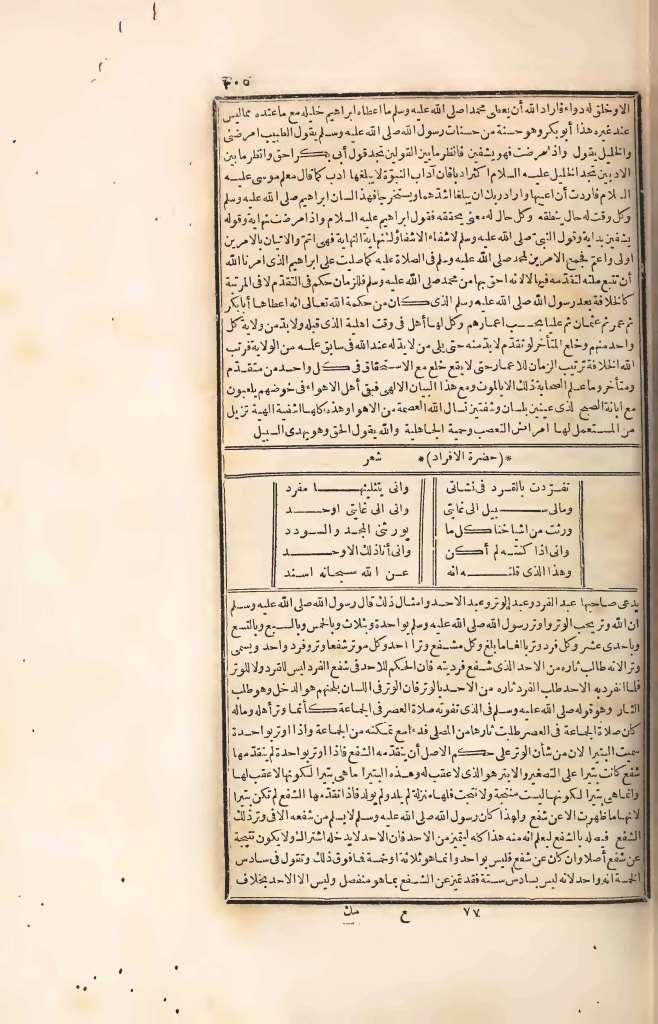 ٣٠٥
الا وخلق له دواء فاراد الله أن يعطى محمدا صلى الله عليه وسلم ما اعطاه ابراهيم خليله مع ما عنده مما ليس
عند غيره هذا أبو بكر وهو حسنة من حسنات رسول الله صلى الله عليه وسلم يقول الطبيب امرضنى
والخليل يقول واذا مرضت فهو يشفين فانظر ما بين القولين تجد قول أبى بكر احق وانظر ما بين
الادبين تجد الخليل عليه السلام اكثر ادبا فان آداب النبوّة لا يبلغها ادب كما قال معلم موسى عليه
السلام فاردت أن اعيبها واراد ربك ان يبلغا اشدهما ويستخرجا فهذا لسان ابراهيم صلى الله عليه وسلم
وكل وقت له حال ينطقه وكل حال له معنى يحققه فقول ابراهيم عليه السلام واذا مرضت نهاية وقوله
يشفين بداية وقول النبىّ صلى الله عليه وسلم لا شفاء الا شفاؤك نهاية النهاية فهى اتم والاتيان بالامرين
اولى واعم فجمع الامرين لمحمد صلى الله عليه وسلم فى الصلاة عليه كما صليت على ابراهيم الذى امرنا الله
أن نتبع ملته لتقدمه فيها لا لانه احق بها من محمد صلى الله عليه وسلم فللزمان حكم فى التقدّم لا فى المرتبة
كالخلافة بعد رسول الله صلى الله عليه وسلم الذى كان من حكمة الله تعالى انه اعطاها أبا بكر
ثم عمر ثم عثمان ثم عليا بحسب اعمارهم وكل لها أهل فى وقت اهلية الذى قبله ولا بدّ من ولاية كل
واحد منهم وخلع المتأخر لو تقدّم لا بدّ منه حتى يلى من لا بد له عند الله فى سابق علمه من الولاية فرتب
الله الخلافة ترتيب الزمان للاعمار حتى لا يقع خلع مع الاستحقاق فى كل واحد من متقدّم
ومتأخر وما علم الصحابة ذلك الا بالموت ومع هذا البيان الالهى فبقى أهل الاهواء فى خوضهم يلعبون
مع ابانة الصبح لذى عينين بلسان وشفتين نسال الله العصمة من الاهواء وهذه كلها اشفية الهية تزيل
من المستعمل لها امراض التعصب وحمية الجاهلية والله يقول الحق وهو يهدى السبيل
*(حضرة الافراد)* شعر
تفرّدت بالفرد فى نشأتى وانى بتثليثها مفرد
ومالى سبيل الى غايتى وانى الى غايتى اوحد
ورثت من اشياخنا كل ما يورثنى المجد والسودد
وانى اذا كنته لم أكن وانى أنا ذلك الاوحد
وهذا الذى قلته انه عن الله سبحانه اسند
يدعى صاحبها عبد الفرد وعبد الوتر وعبد الاحد وامثال ذلك قال رسول الله صلى الله عليه وسلم
ان الله وتر يحب الوتر واوتر رسول الله صلى الله عليه وسلم بواحدة وبثلاث وبالخمس وبالسبع وبالتسع
وباحدى عشر وكل فرد وتر بالغا ما بلغ وكل مشفع وترا احد وكل موتر شفعا وتر وفرد واحد ويسمى
وتر الانه طالب ثاره من الاحد الذى شفع فرديته فان الحكم للاحد فى شفع الفرد ليس للفرد ولا للوتر
فلما انفرد به الاحد طلب الفرد ثاره من الاحد بالوتر فان الوتر فى اللسان بلحنهم هو الدخل وهو طلب
الثار وهو قوله صلى الله عليه وسلم فى الذى تفوته صلاة العصر فى الجماعة كأنما وتر أهله وماله
كان صلاة الجماعة فى العصر طلبت ثارها من المصلى فذا مع تمكنه من الجماعة واذا اوتر بواحدة
سميت البتيرا لان من شأن الوتر على حكم الاصل أن يتقدّمه الشفع فاذا اوتر بواحدة لم يتقدّمها
شفع كانت بتيرا على التصغير والابتر هو الذى لا عقب له وهذه البتيرا ما هى بتيرا لكونها لا عقب لها
وانما هى بتيرا لكونها ليست منتجة ولا نتجت فلها منزلة لم يلد ولم يولد فاذا تقدّمها الشفع لم تكن بتيرا
لانها ما ظهرت الا عن شفع ولهذا كان رسول الله صلى الله عليه وسلم لا يسلم من شفعه الا فى وتر ذلك
الشفع فيصله بالشفع ليعلم انه منه هذا كله ليتميز من الاحد فان الاحد لا يدخله اشتراك ولا يكون نتيجة
عن شفع أصلا وان كان عن شفع فليس بواحد وانما هو ثلاثة او خمسة فما فوق ذلك وتقول فى سادس
الخمسة انه واحد لانه ليس بسادس ستة فقد تميز عن الشفع بما هو منفصل وليس الا الاحد بخلاف
٧٧ ع مك